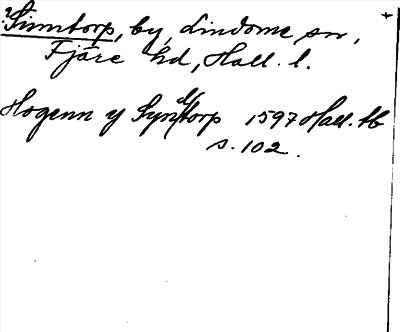 Sinntorp, by, Lindome sn, +
Fjäre hd, Hall. l.
Hogenn y Syndtorp 1597 Hall. tb
s. 102.